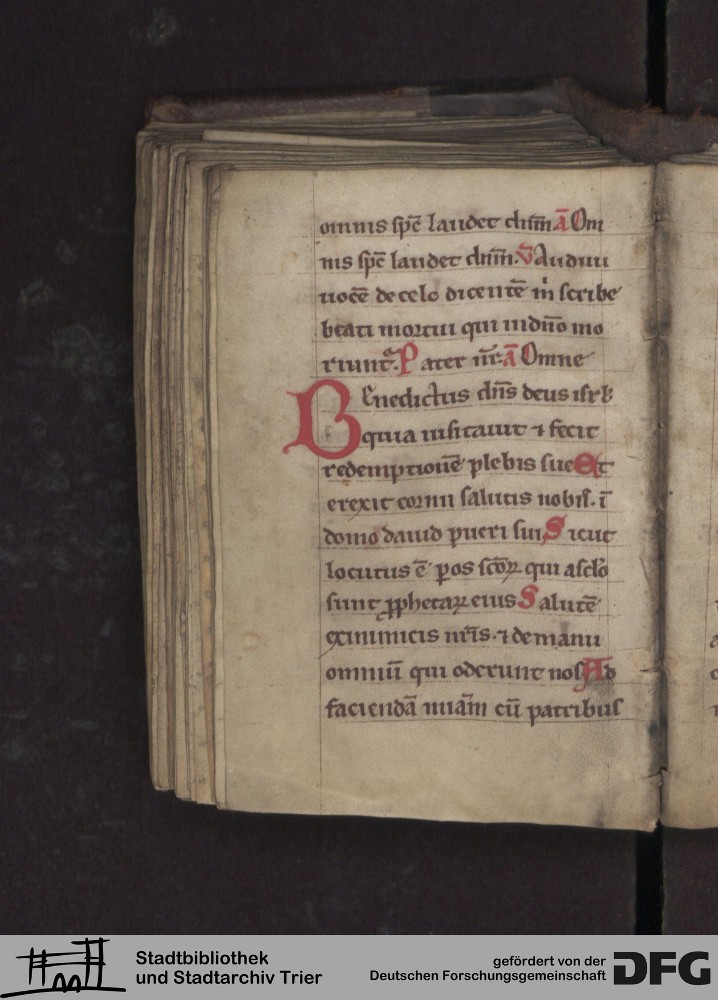 omnis sp̄c laudet dn̄m ā Om
nis sp̄c laudet dn̄m. v̄ Audiui
uocē de celo dicentē m̄ scribe
beati mortui qui in dn̄o mo
riunt᷑. Pater nr̄. ā Omne
Benedictus dn̄s deus isrł
quia uisitauit ⁊ fecit
redemptionē plebis sue Et
erexit cornu salutis nobis. ī
domo dauid pueri sui Sicut
locutus ē p os sc̄oꝝ qui a sclo
sunt ꝓphetaꝝ eius Salutē
ex inimicis nr̄is. ⁊ de manu
omniū qui oderunt nos Ad
faciendā miam̄ cū patribus
Stadtbibliothek
und Stadtarchiv Trier
gefördert von der
Deutschen Forschungsgemeinschaft
DFG